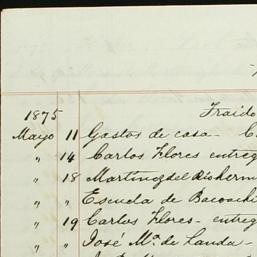 1875
Traido
Mayo 11 Gastos de casa - C
" 14 Carlos Flores entreg
" 18 Martinez del Rio herm
" " Escuela de Bacoachi
" 19 Carlos Flores - entreg
" " José Mª de Landa -